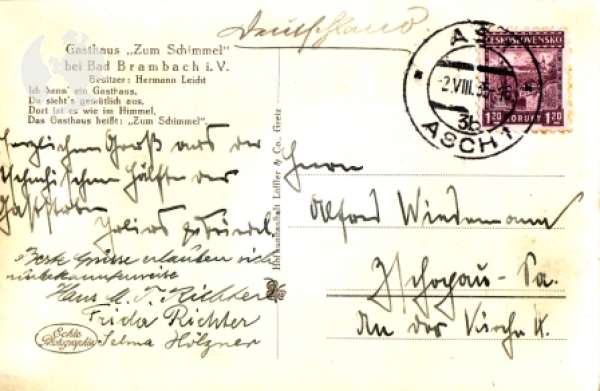 Deutschland
Gasthaus „Zum Schimmel"
bei Bad Brambach i. V.
Besitzer: Hermann Leicht
Ich kenn' ein Gasthaus,
Da sieht's gemütlich aus,
Dort ist es wie im Himmel,
Das Gasthaus heißt: „Zum Schimmel".
Herzlichen Gruß aus der
tschechischen Hälfte des
Beste Grüsse erlauben sich
unbekannterweise
Hans u. T. Richter
Frida Richter
Selma Hölzner
Echte
Photographie
Hofkunstanstalt Löffler & Co., Greiz
ČESKOSLOVENSKO
1.20 KORUNY 1.20
AŠ
2.VIII.35
3b
ASCH 1
Herrn
Alfred Wiedemann
Zschopau - Sa.
An der Kirche